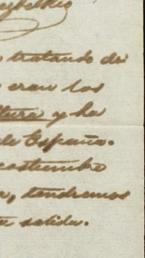 tratando de
eran los
tura y ha
de España.
costumbre
, tendremos
salida.